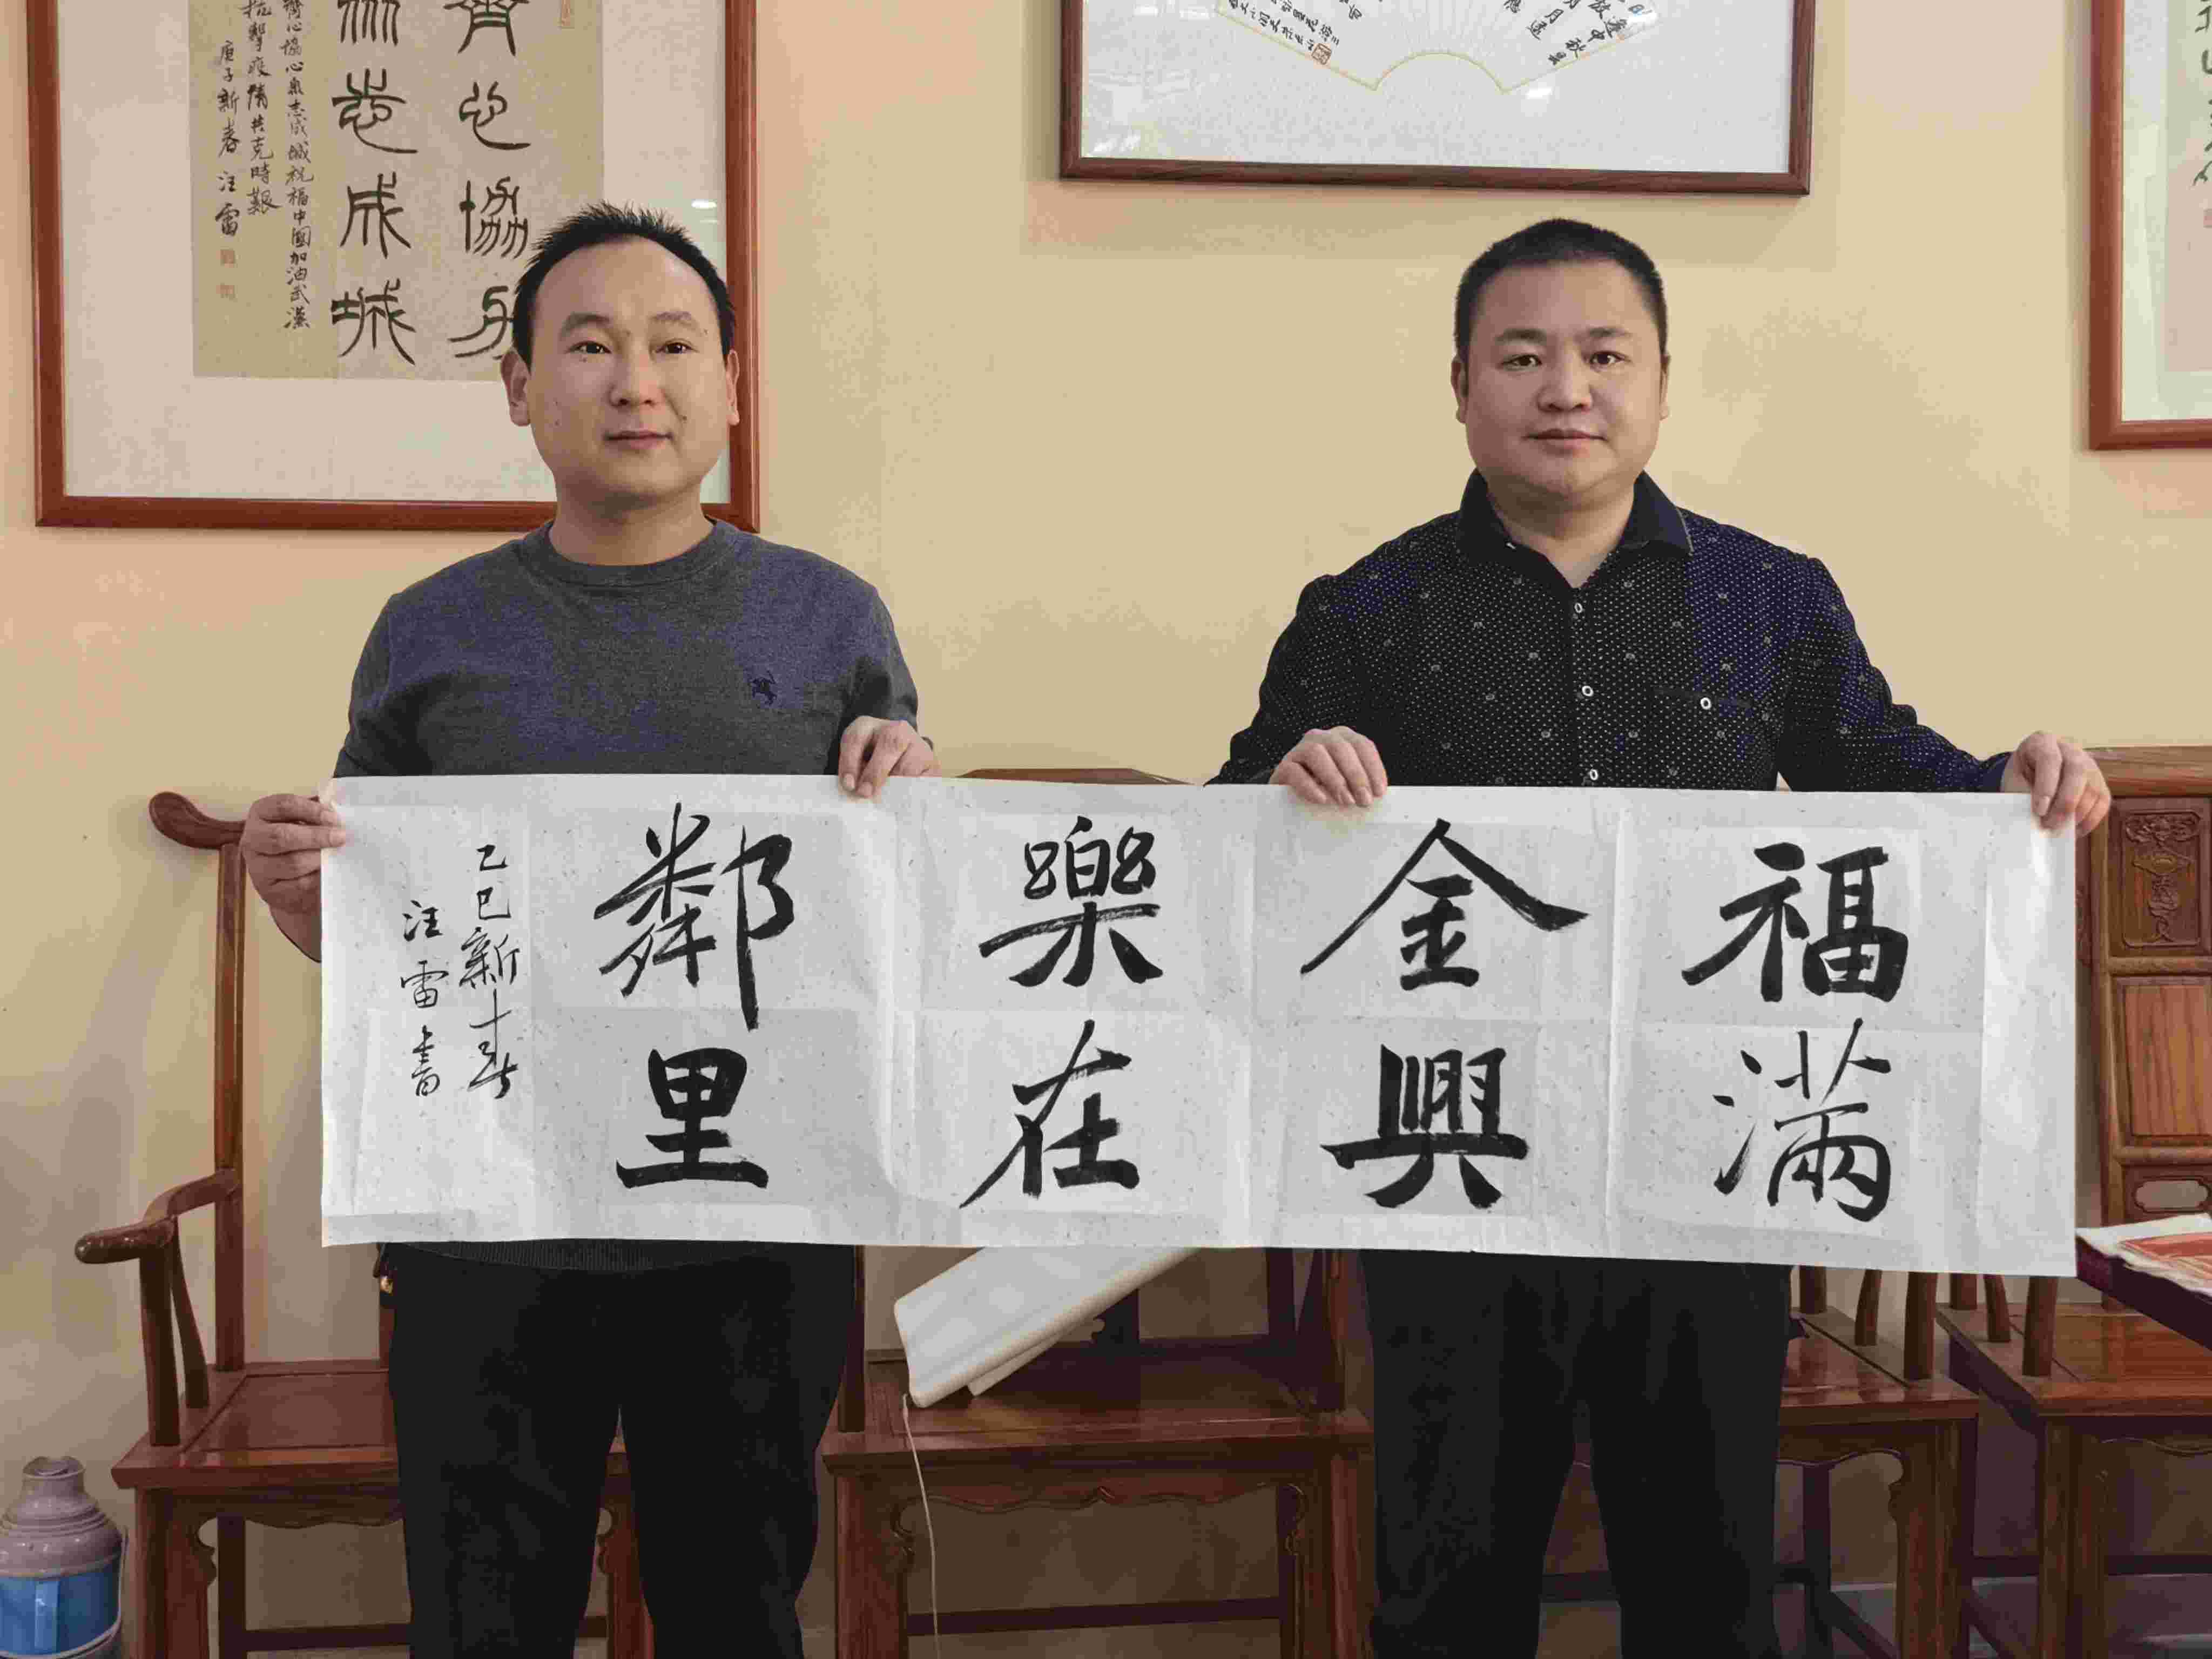 福滿
金興
樂在
鄰里
乙巳新春
汪雷書
齊心協力
志成城
齊心協心衆志成城祝福中國加油武漢
抗擊疫情共克時艱
庚子新春 汪雷